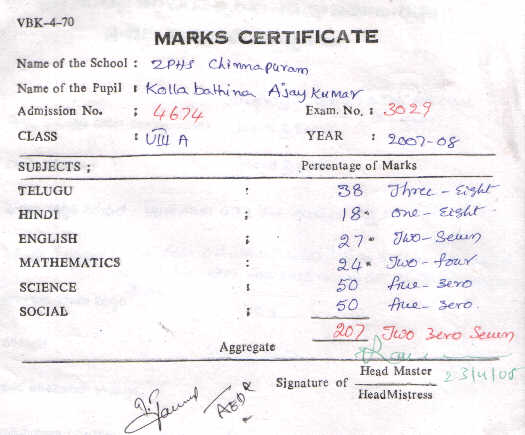 VBK-4-70
MARKS CERTIFICATE
Name of the School : ZPHS Chinnapuram
Name of the Pupil : Kolla bathina Ajay Kumar
Admission No. : 4674 Exam. No. : 3029
CLASS : VIII A YEAR : 2007-08
SUBJECTS ; Percentage of Marks
TELUGU : 38 Three - Eight
HINDI : 18 one - Eight
ENGLISH : 27 Two - Seven
MATHEMATICS : 24 Two - four
SCIENCE : 50 five - zero
SOCIAL : 50 five - zero.
Aggregate 207 Two zero Seven
Signature of Head Master 23/4/08
HeadMistress